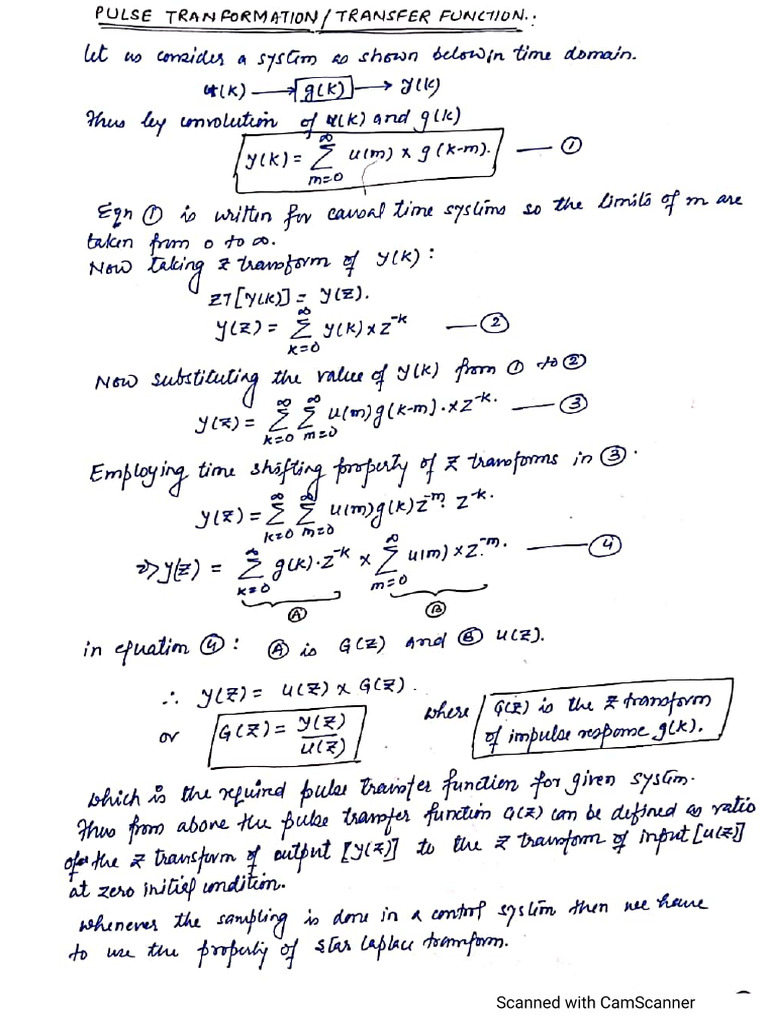 PULSE TRANFORMATION / TRANSFER FUNCTION.:
let us consider a system as shown below in time domain.
u(k) → g(k) → y(k)
Thus by convolution of u(k) and g(k)
y(k) = ∞ Σ m=0 u(m) × g(k-m). — ①
Eqn ① is written for causal time systems so the limits of m are
taken from 0 to ∞.
Now taking z transform of y(k) :
ZT[y(k)] = y(z).
y(z) = ∞ Σ k=0 y(k) × z^-k — ②
Now substituting the value of y(k) from ① to ②
y(z) = ∞ Σ k=0 ∞ Σ m=0 u(m) g(k-m) . × z^-k. — ③
Employing time shifting property of z transforms in ③ .
y(z) = ∞ Σ k=0 ∞ Σ m=0 u(m) g(k) z^-m. z^-k.
=> y(z) = ∞ Σ k=0 g(k) . z^-k × ∞ Σ m=0 u(m) × z^-m. — ④
Ⓐ Ⓑ
in equation ④ : Ⓐ is G(z) and Ⓑ u(z).
∴ y(z) = u(z) × G(z).
or G(z) = y(z) / u(z) where G(z) is the z transform
of impulse response g(k).
which is the required pulse transfer function for given system.
Thus from above the pulse transfer function G(z) can be defined as ratio
of the z transform of output [y(z)] to the z transform of input [u(z)]
at zero initial condition.
whenever the sampling is done in a control system then we have
to use the property of star laplace transform.
Scanned with CamScanner